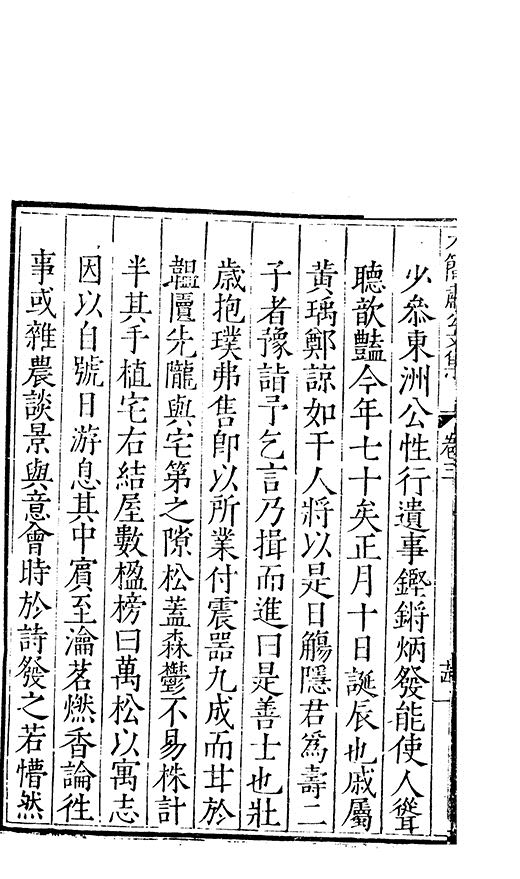 少參東洲公性行遺事鏗鏘炳發能使人聳
聽歆豔今年七十矣正月十日誕辰也戚屬
黃瑀鄭諒如干人將以是日觴隱君為壽二
子者豫詣予乞言乃揖而進曰是善士也壯
歲抱璞弗售即以所業付震器九成而甘於
韞匵先隴與宅第之隙松蓋森鬱不易株計
半其手植宅右結屋數楹榜曰萬松以寓志
因以自號日游息其中賓至瀹茗燃香論往
事或雜農談景與意會時於詩發之若懵然
卷三